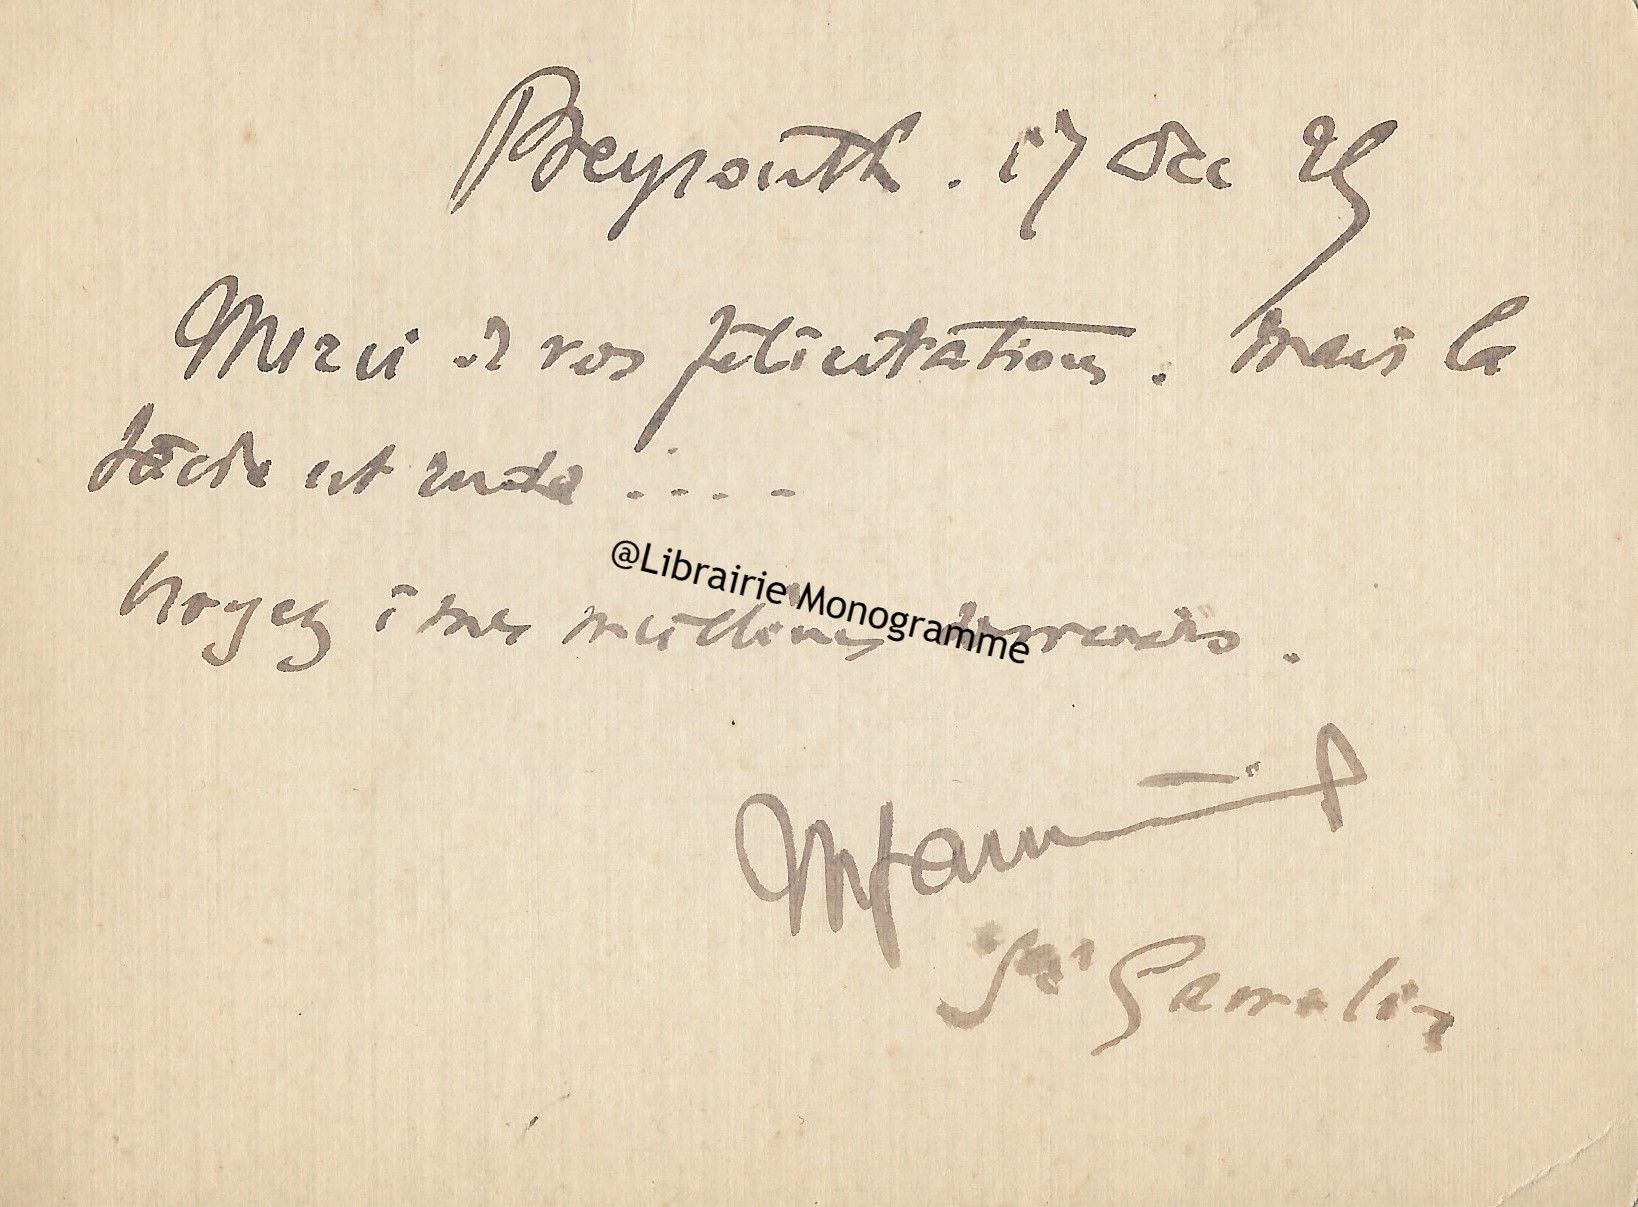 Beyrouth. 17 Dec 25
Merci de vos félicitations. Mais la
tâche est rude .....
Croyez à mes meilleurs souvenirs.
@Librairie Monogramme
Gal Gamelin